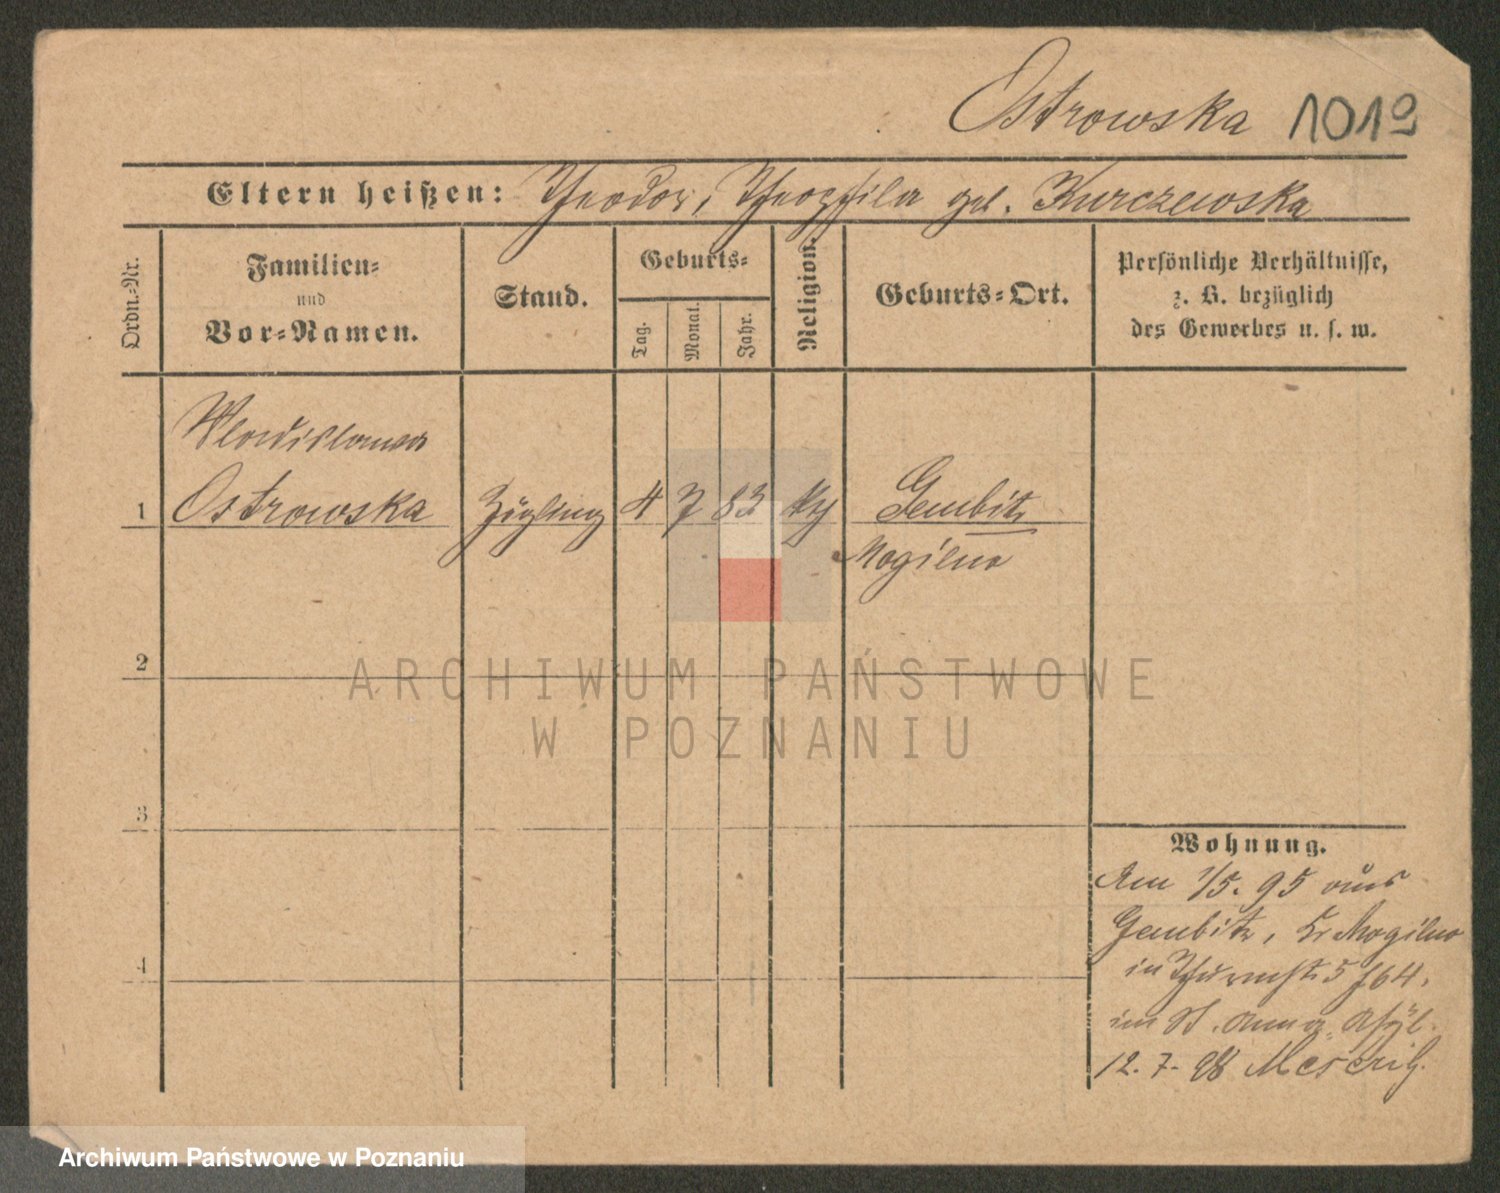 Ostrowska 1019
Eltern heißen: Theodor, Theophila geb. Kurczewska
Ordn.-Nr.
Familien-
und
Vor-Namen.
Stand.
Geburts-
Tag.
Monat.
Jahr.
Religion.
Geburts-Ort.
Persönliche Verhältnisse,
z. B. bezüglich
des Gewerbes u. s. w.
Wladislawa
1 Ostrowska Zögling 4 7 83 Gembitz
Mogilno
2
3
4
Wohnung.
Am 1/5. 95 aus
Gembitz, Kr Mogilno
in Thurmstr 5
im St. Anna Asyl.
12. 7. 98 Meseritz.
ARCHIWUM PAŃSTWOWE
W POZNANIU
Archiwum Państwowe w Poznaniu